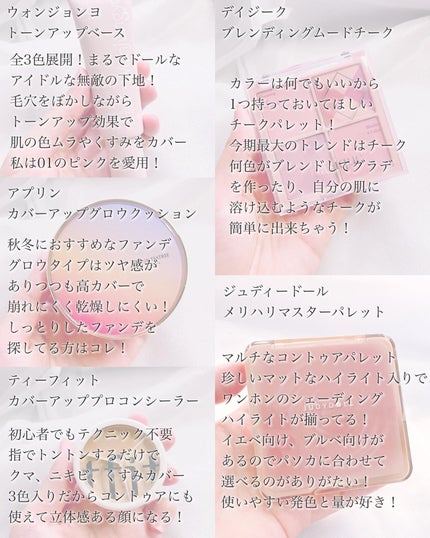 ウォンジョンヨ
トーンアップベース
全3色展開！まるでドールな
アイドルな無敵の下地！
毛穴をぼかしながら
トーンアップ効果で
肌の色ムラやくすみをカバー
私は01のピンクを愛用！
アプリン
カバーアップグロウクッション
秋冬におすすめなファンデ
グロウタイプはツヤ感が
ありつつも高カバーで
崩れにくく乾燥しにくい！
しっとりしたファンデを
探してる方はコレ！
ティーフィット
カバーアッププロコンシーラー
初心者でもテクニック不要
指でトントンするだけで
クマ、ニキビ、くすみカバー
3色入りだからコントゥアにも
使えて立体感ある顔になる！
デイジーク
ブレンディングムードチーク
カラーは何でもいいから
1つ持っておいてほしい
チークパレット！
今期最大のトレンドはチーク
何色がブレンドしてグラデ
を作ったり、自分の肌に
溶け込むようなチークが
簡単に出来ちゃう！
ジュディードール
メリハリマスターパレット
マルチなコントゥアパレット
珍しいマットなハイライト入りで
ワンホンのシェーディング
ハイライトが揃ってる！
イエベ向け、ブルベ向けが
あるのでパソカに合わせて
選べるのがありがたい！
使いやすい発色と量が好き！